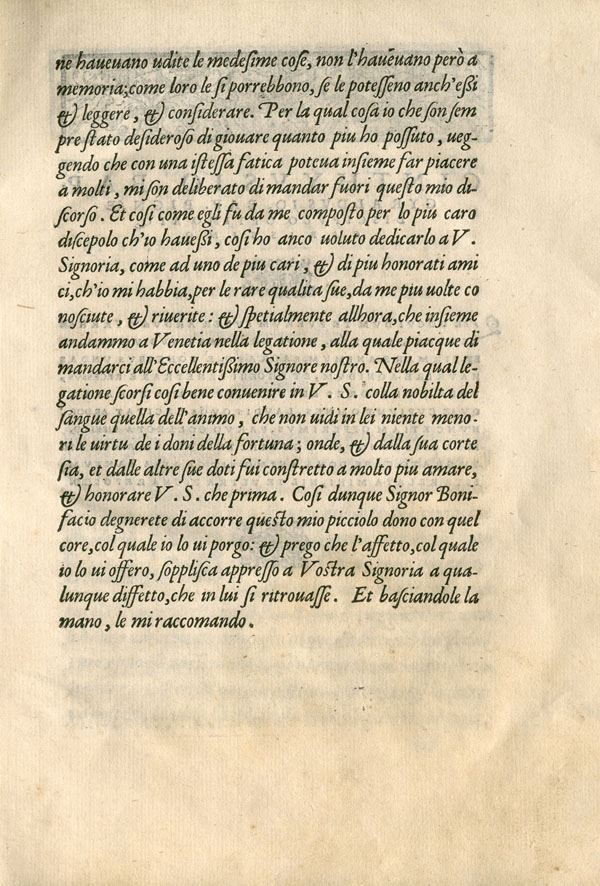 ne haueuano udite le medesime cose, non l'haueuano però a
memoria; come loro le si porrebbono, se le potesseno anch'essi
& leggere, & considerare. Per la qual cosa io che son sem
pre stato desideroso di giouare quanto piu ho possuto, ueg-
gendo che con una istessa fatica poteua insieme far piacere
a molti, mi son deliberato di mandar fuori questo mio di-
scorso. Et cosi come egli fu da me composto per lo piu caro
discepolo ch'io hauessi, cosi ho anco uoluto dedicarlo a V.
Signoria, come ad uno de piu cari, & di piu honorati ami
ci, ch'io mi habbia, per le rare qualita sue, da me piu uolte co
nosciute, & riuerite: & spetialmente allhora, che insieme
andammo a Venetia nella legatione, alla quale piacque di
mandarci all'Eccellentissimo Signore nostro. Nella qual le-
gatione scorsi cosi bene conuenire in V. S. colla nobilta del
sangue quella dell'animo, che non uidi in lei niente meno-
ri le uirtu de i doni della fortuna; onde, & dalla sua corte
sia, et dalle altre sue doti fui constretto a molto piu amare,
& honorare V. S. che prima. Cosi dunque Signor Boni-
facio degnerete di accorre questo mio picciolo dono con quel
core, col quale io lo ui porgo: & prego che l'affetto, col quale
io lo ui offero, sopplisca appresso a Vostra Signoria a qua-
lunque diffetto, che in lui si ritrouasse. Et basciandole la
mano, le mi raccomando.